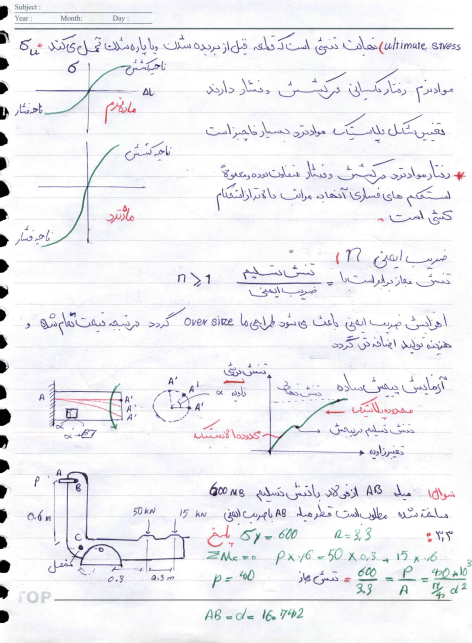 Subject :
Year : Month: Day :
σu (ultimate stress) نهایت تنشی است که قطعه قبل از بریده شدن یا پاره شدن تحمل می کند
σ
ناحیه کشش
ΔL
ناحیه فشار
ماده نرم
مواد نرم رفتار یکسانی در کشش و فشار دارند
تغییر شکل پلاستیک مواد ترد بسیار ناچیز است
ناحیه کشش
ماده ترد
ناحیه فشار
* رفتار مواد ترد در کشش و فشار متفاوت بوده و معمولاً
استحکام های فشاری آنها به مراتب بالاتر از استحکام
کششی است
ضریب ایمنی n
تنش مجاز برابر است با = تنش تسلیم / ضریب ایمنی n ⩾ 1
افزایش ضریب ایمنی باعث می شود طراحی ما over size گردد در نتیجه قیمت تمام شده و
هزینه تولید اضافه تر گردد
آزمایش پیچش ساده
تنش برشی
تنش نهایی
محدوده پلاستیک
تنش تسلیم در پیچش
محدوده الاستیک
تغییر زاویه
A A' A'
α زاویه
α
سوال 1 میله AB از فولاد با تنش تسلیم 600 MB
ساخته شده مطلوب است قطر میله AB با ضریب ایمنی
3,3
پاسخ σy = 600 n = 3,3
ΣMc = 0 P x 0,6 = 50 x 0,3 + 15 x 0,6
P = 40 تنش مجاز = 600/3.3 = P/A = 40x10³ / π/4 d²
AB = d = 16.742
P A B
0.6 m
50 kN 15 kN
C D
مفصل
0.3 0.3 m
TOP